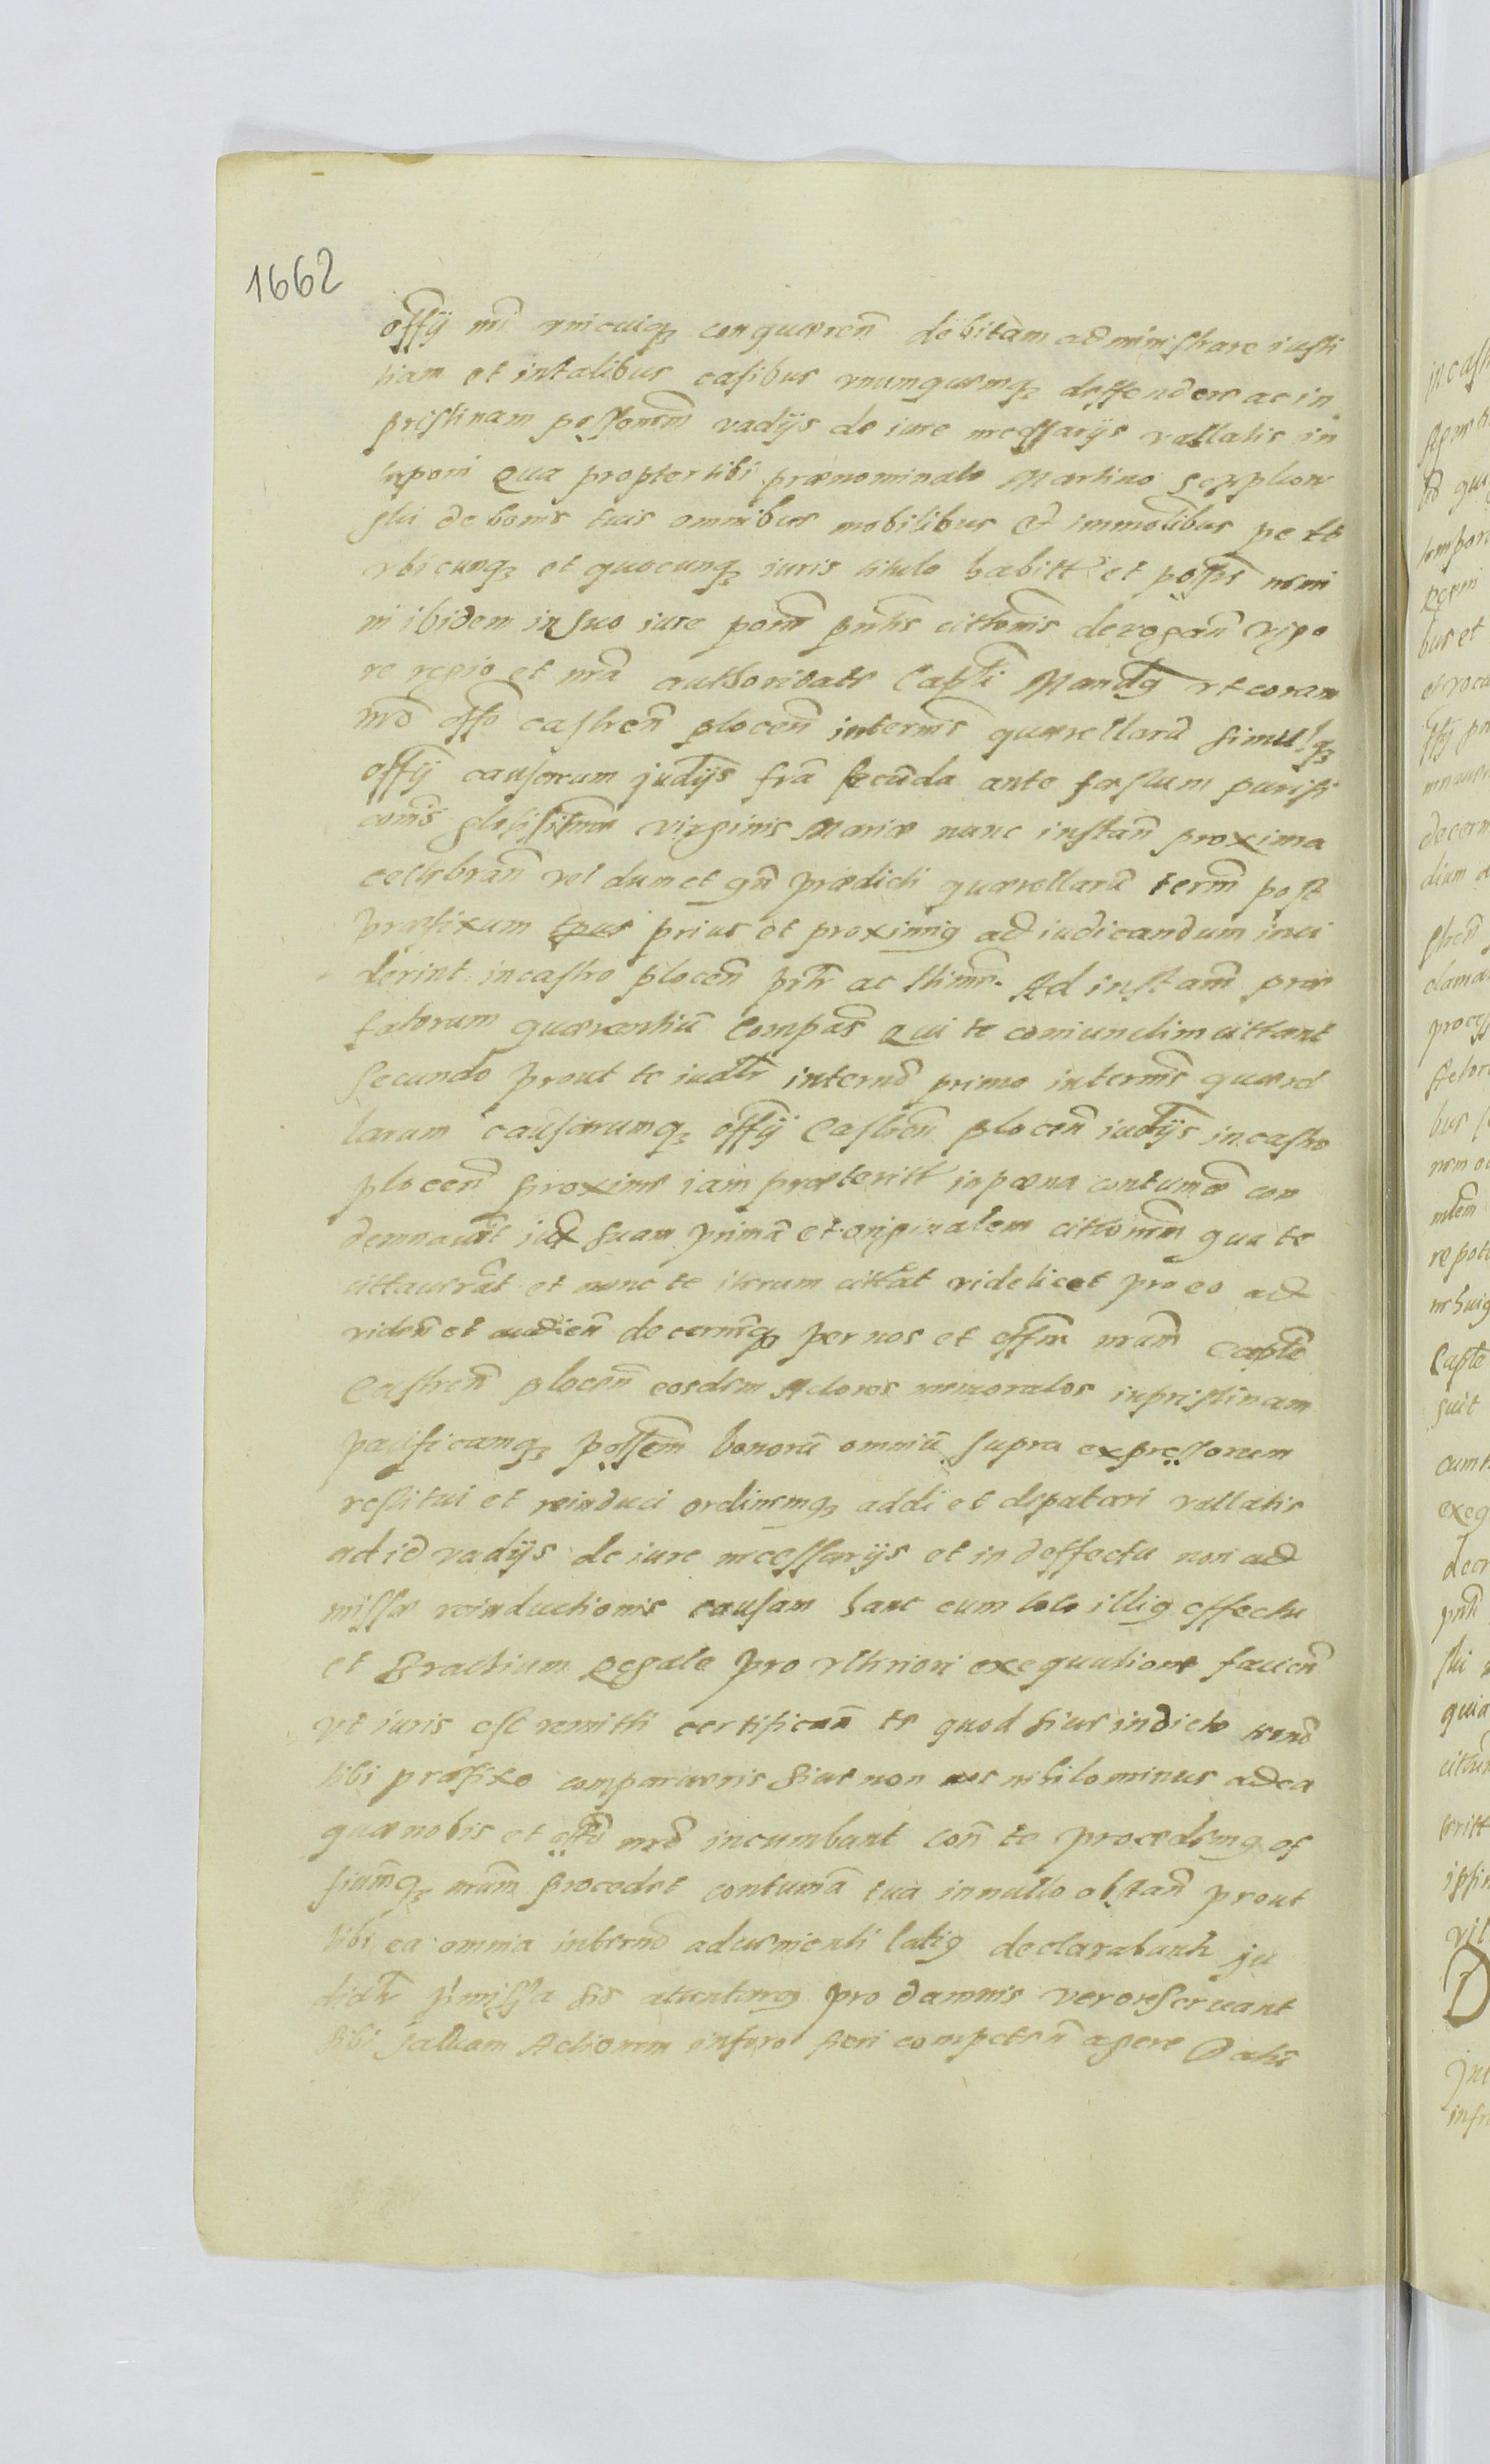 1662
offy nri vnicuiq3 conquaeren debitam administrare iusti
tiam et in talibus casibus vnumquemq3 deffendere ac in
pristinam possonem vadijs de iure necessarijs vallatis in
terponi Qua propter tibi praenominato Martino
ski de bonis tuis omnibus mobilibus et immobilibus
vbicunq3 et quocunq3 iuris titulo habitt et possis nemi
ni ibidem in suo iure pntis cittonis derogan vigo
re regio et nra authoritate Capli Mandg vt coram
nro offo castren plocen in termis quaerellaru simulq3
offy causarum judijs fra secunda ante festum purifi
conis glosissimae virginis Mariae nunc instan proxima
celebran vel dum et qn praedicti quaerellaru term post
praefixum prius et proximig ad iudicandum inci
derint in castro plocen prtr ac Ad instam prae
fatorum quaerentiu Compas Qui te coniunctim cittant
secundo prout te iudtr in terno primo in termis quaerel
larum causarumq3 offij Castren plocen iudijs in castro
plocen proxime iam praeteritt in paena contumae con
demnauert iux suam prima et originalem cittonem qua te
cittauerat et nunc te iterum cittat videlicet pro eo ad
viden et audien decernig per nos et offm nrum Capte
Castren plocen eosdem Actores memoratos in pristinam
pacificamq3 possem bonoru omniu supra expressorum
restitui et reinduci ordinemq3 addi et deputari vallatis
ad id vadijs de iure necessarijs et in deffectu non ad
missae reinductionis causam hanc cum toto illig effectu
et Brachium Regale pro vlteriori exequutione facien
vt iuris est remitti certifican te quod siue in dicto terno
tibi praefixo comparueris siue non nos nihilominus ad ea
quae nobis et offo nro incumbunt con te procedemg of
fiumq3 nrum procedet contuma tua in nullo obstan prout
tibi ea omnia in terno aduenienti latig declarabunt ju
didtr pmissa sis attenturg pro damnis vero reseruant
sibi saluam Actionem in foro fori competen agere Datu